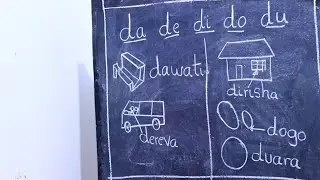 da de di do du
dawati
dirisha
dereva
dogo
duara